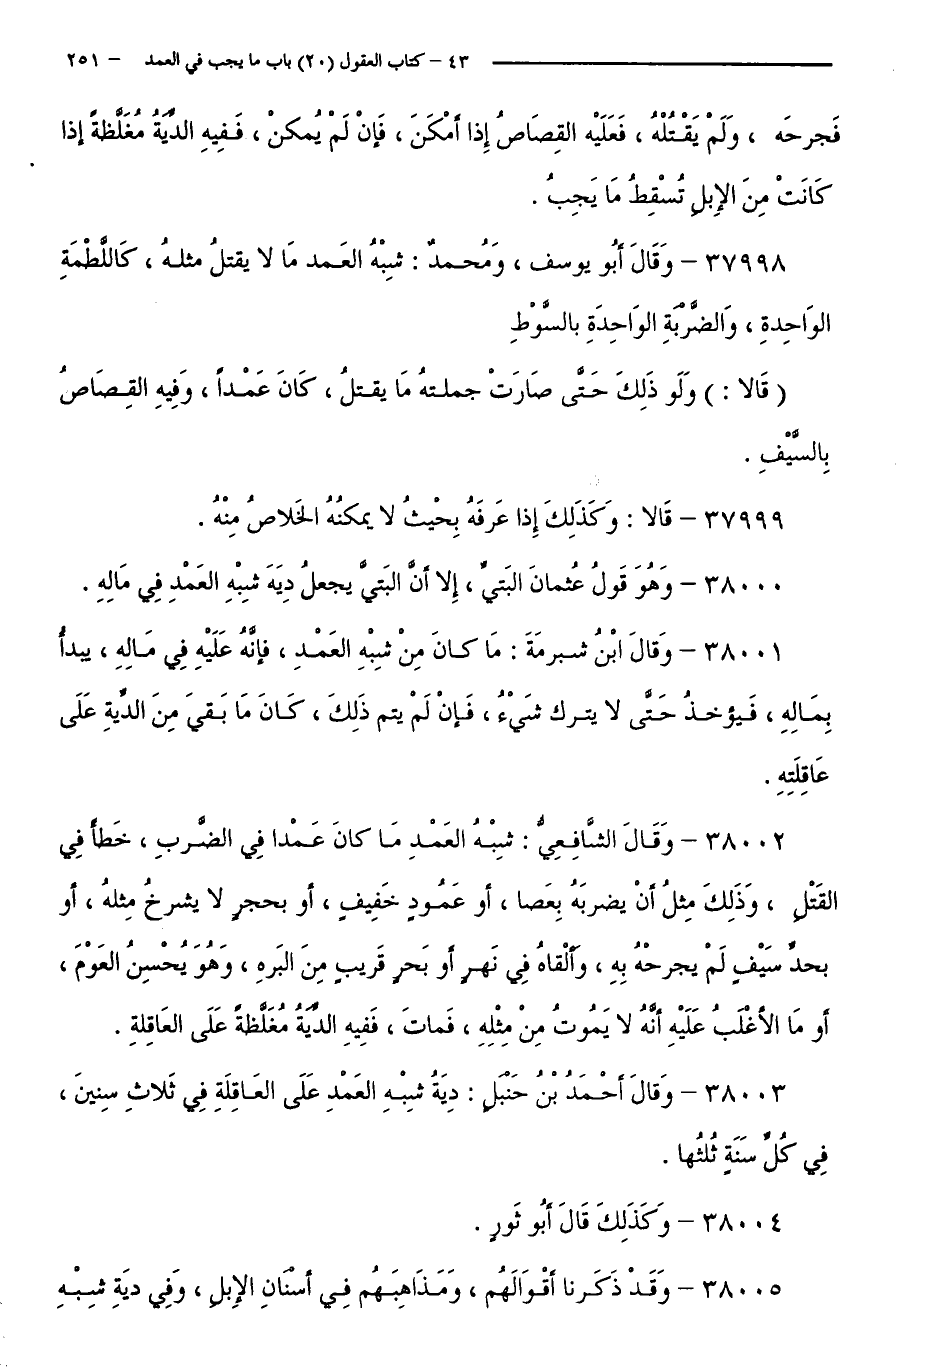 ٤٣ – كتاب العقول (٢٠) باب ما يجب في العمد – ٢٥١
فَجرحَه ، وَلَمْ يَقْتُلْهُ ، فَعَلَيْه القِصَاصُ إِذا أَمْكَنَ ، فَإِنْ لَمْ يُمكنْ ، فَفِيهِ الدِّيَةُ مُغَلَّظةً إِذا
كَانَتْ مِنَ الإِبلِ تُسْقِطُ مَا يَجِبُ .
٣٧٩٩٨ – وَقَالَ أَبُو يوسف ، وَمُحمدٌ : شبْهُ العَمد مَا لا يقتلُ مثلهُ ، كَاللَّطْمَةِ
الوَاحِدةِ ، وَالضَّرْبَةِ الوَاحِدَةِ بالسَّوْطِ
( قَالا : ) وَلَو ذَلِكَ حَتَّى صَارَتْ جملتهُ مَا يقتلُ ، كَانَ عَمْداً ، وَفِيهِ القِصَاصُ
بِالسَّيْفِ .
٣٧٩٩٩ – قَالا : وَكَذَلِكَ إِذا عَرقَهُ بِحْيثُ لا يمكنُهُ الخَلاصُ مِنْهُ .
٣٨٠٠٠ – وَهُوَ قَولُ عُثمانَ البَتيِّ ، إِلا أَنَّ البَتيَّ يجعلُ دِيَةَ شبْهِ العَمْدِ فِي مَالِهِ .
٣٨٠٠١ – وَقَالَ ابْنُ شبرمَةَ : مَا كانَ مِنْ شبْهِ العَمْدِ ، فإِنَّهُ عَلَيْهِ فِي مَالِهِ ، يبدأُ
بِمَالِهِ ، فَيؤخذُ حَتَّى لا يترك شَيْءٌ ، فَإِنْ لَمْ يتم ذَلِكَ ، كَانَ مَا بَقيَ مِنَ الدِّيَةِ عَلَى
عَاقِلَتِهِ .
٣٨٠٠٢ – وَقَالَ الشَّافِعِيُّ : شبْهُ العَمْدِ مَا كانَ عَمْدا فِي الضَّربِ ، خَطأً فِي
القَتْلِ ، وَذَلِكَ مِثلُ أَنْ يضربَهُ بِعَصا ، أو عَمُودٍ خَفيفٍ ، أو بحجرٍ لا يشرخُ مثلهُ ، أو
بحدِّ سَيْفٍ لَمْ يجرحْهُ بِهِ ، وَأَلْقاهُ فِي نَهرٍ أو بَحرٍ قَريبٍ مِنَ البَره ، وَهُوَ يُحْسِنُ العَوْمَ ،
أو مَا الأغْلَبُ عَلَيْهِ أَنَّهُ لا يَمُوتُ مِنْ مِثْلِهِ ، فَماتَ ، فَفيهِ الدِّيَةُ مُغَلَّظةً عَلَى العَاقِلةِ .
٣٨٠٠٣ – وَقالَ أَحْمَدُ بْنُ حَنْبَلٍ : دِيَةُ شبْهِ العَمْدِ عَلَى العَاقِلَةِ فِي ثَلاثِ سِنِينَ ،
فِي كُلِّ سَنَةٍ ثُلُثُها .
٣٨٠٠٤ – وَكَذَلِكَ قَالَ أَبُو ثَورٍ .
٣٨٠٠٥ – وَقَدْ ذَكَرنا أَقْوَالَهُم ، وَمَذَاهِبَهُم فِي أَسْنَانِ الإِبلِ ، وَفِي دِيَةِ شبْهِ